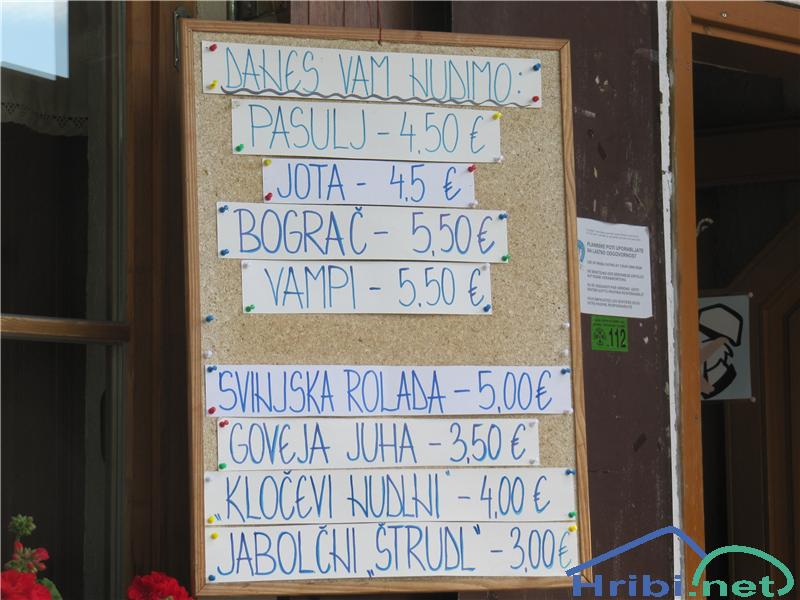 DANES VAM NUDIMO:
PASULJ - 4,50 €
JOTA - 4,5 €
BOGRAČ - 5,50 €
VAMPI - 5,50 €
SVINJSKA ROLADA - 5,00 €
GOVEJA JUHA - 3,50 €
„KLOČEVI NUDLNI" - 4,00 €
JABOLČNI „ŠTRUDL" - 3,00 €
PLANINSKE POTI UPORABLJATE
NA LASTNO ODGOVORNOST
112
Hribi.net